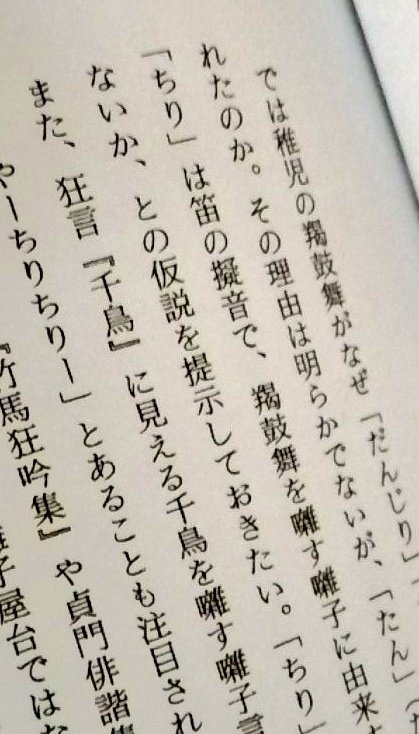 では稚児の羯鼓舞がなぜ「だんじり」
れたのか。その理由は明らかでないが、「たん」
「ちり」は笛の擬音で、羯鼓舞を囃す囃子に由来
ないか、との仮説を提示しておきたい。「ちり」
また、狂言『千鳥』に見える千鳥を囃す囃子言
やーちりちりー」とあることも注目され
『竹馬狂吟集』や貞門俳諧集
子屋台ではな